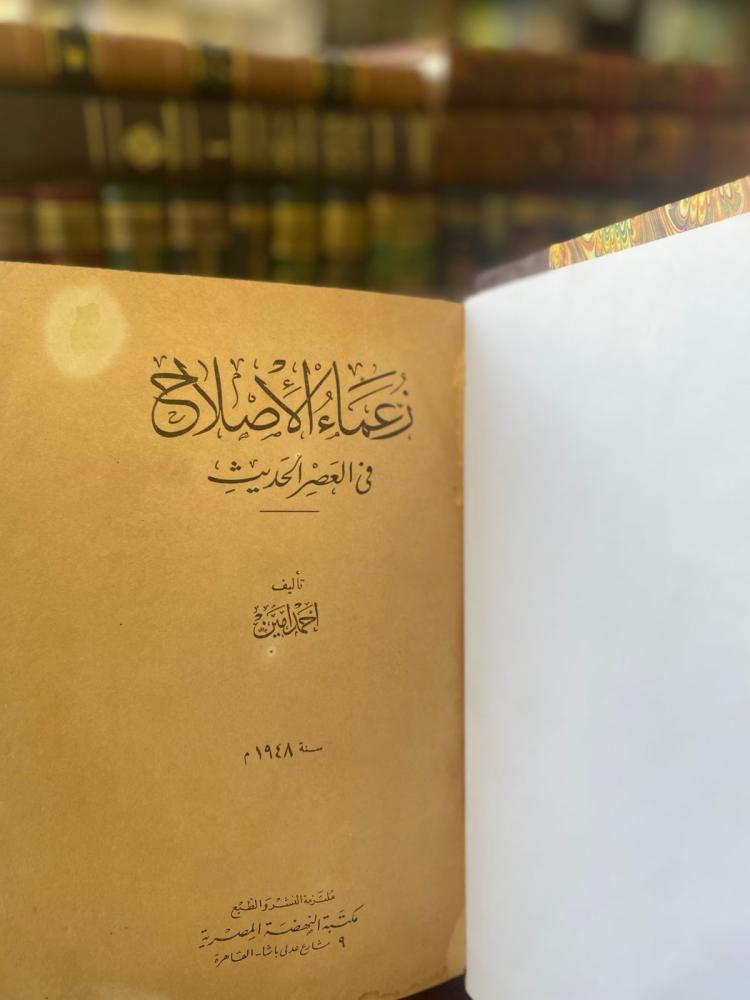 زُعَمَاءُ الْأَصْلَاح
فى العَصْرِ الحَدِيثِ
تأليف
أحمد أمين
سنة ١٩٤٨ م
مُلتَزمة النشر وَالطبْع
مكتَبة النهضَة المِصْرية
٩ شارع عدلى باشا - القاهرة